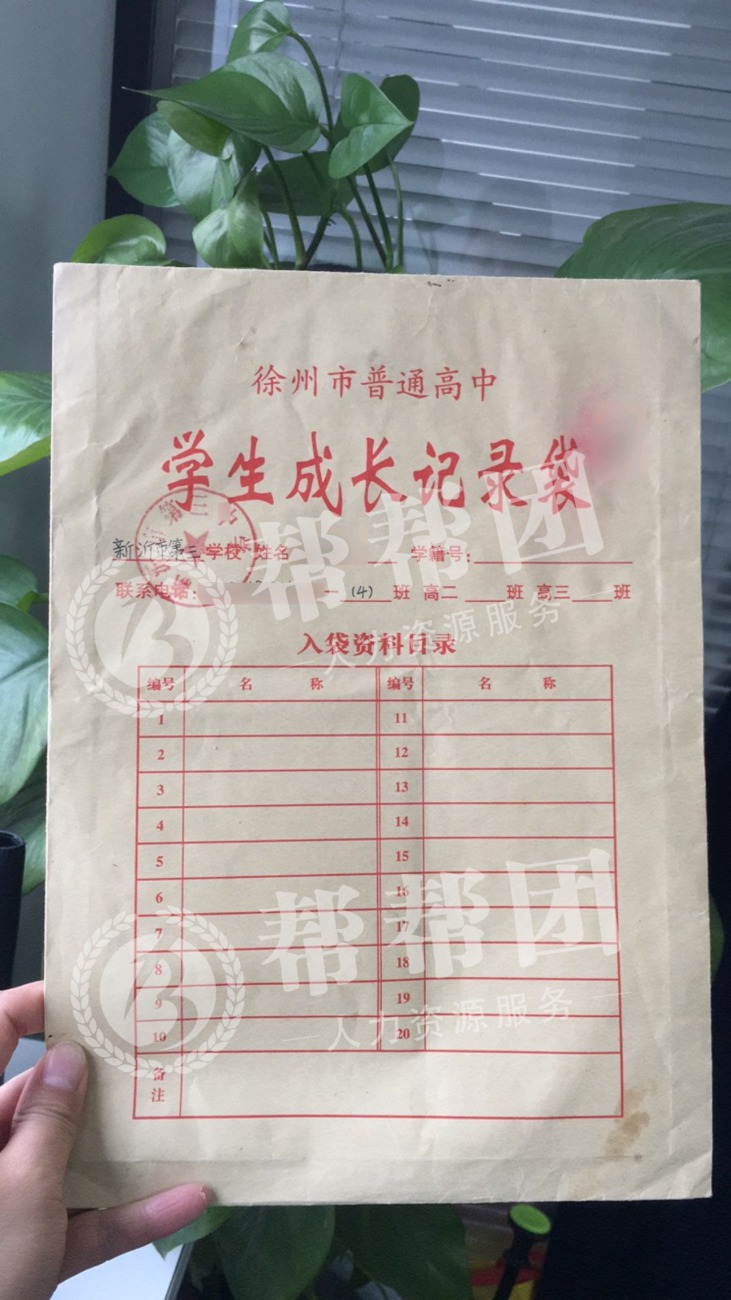 徐州市普通高中
学生成长记录袋
新沂市第三学校 姓名 学籍号：
联系电话： 一 (4) 班 高二 班 高三 班
入袋资料目录
编号 名称 编号 名称
1 11
2 12
3 13
4 14
5 15
6 16
7 17
8 18
9 19
10 20
备注
帮帮团
人力资源服务
帮帮团
人力资源服务